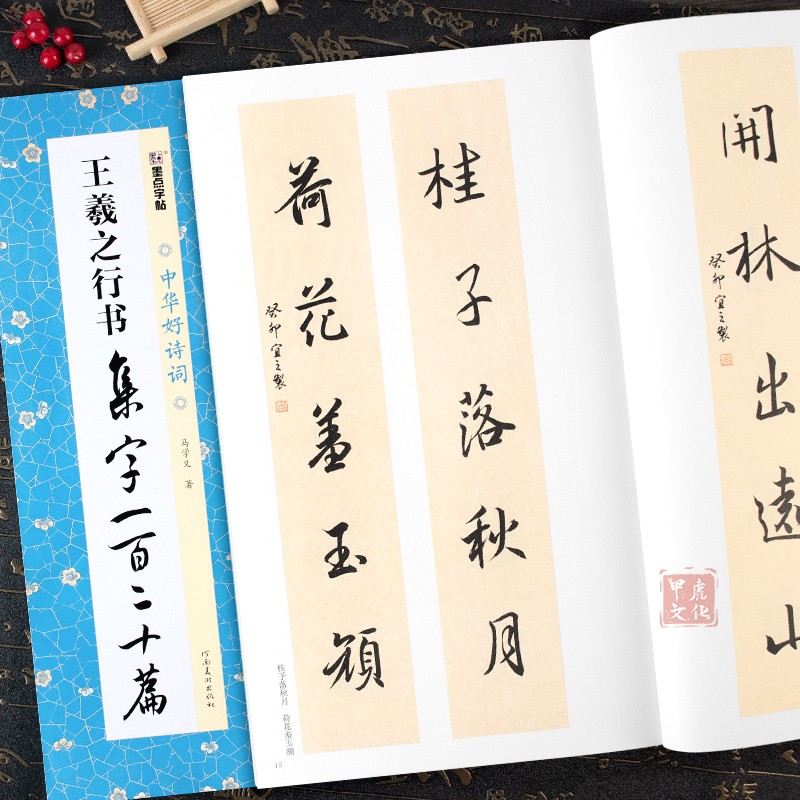 墨点字帖
王羲之行书
集字一百二十篇
中华好诗词
马学义 著
河南美术出版社
桂子落秋月
荷花羞玉顔
癸卯宜之製
桂子落秋月 荷花羞玉颜
15
開林出遠山
癸卯宜之製
甲虎
文化